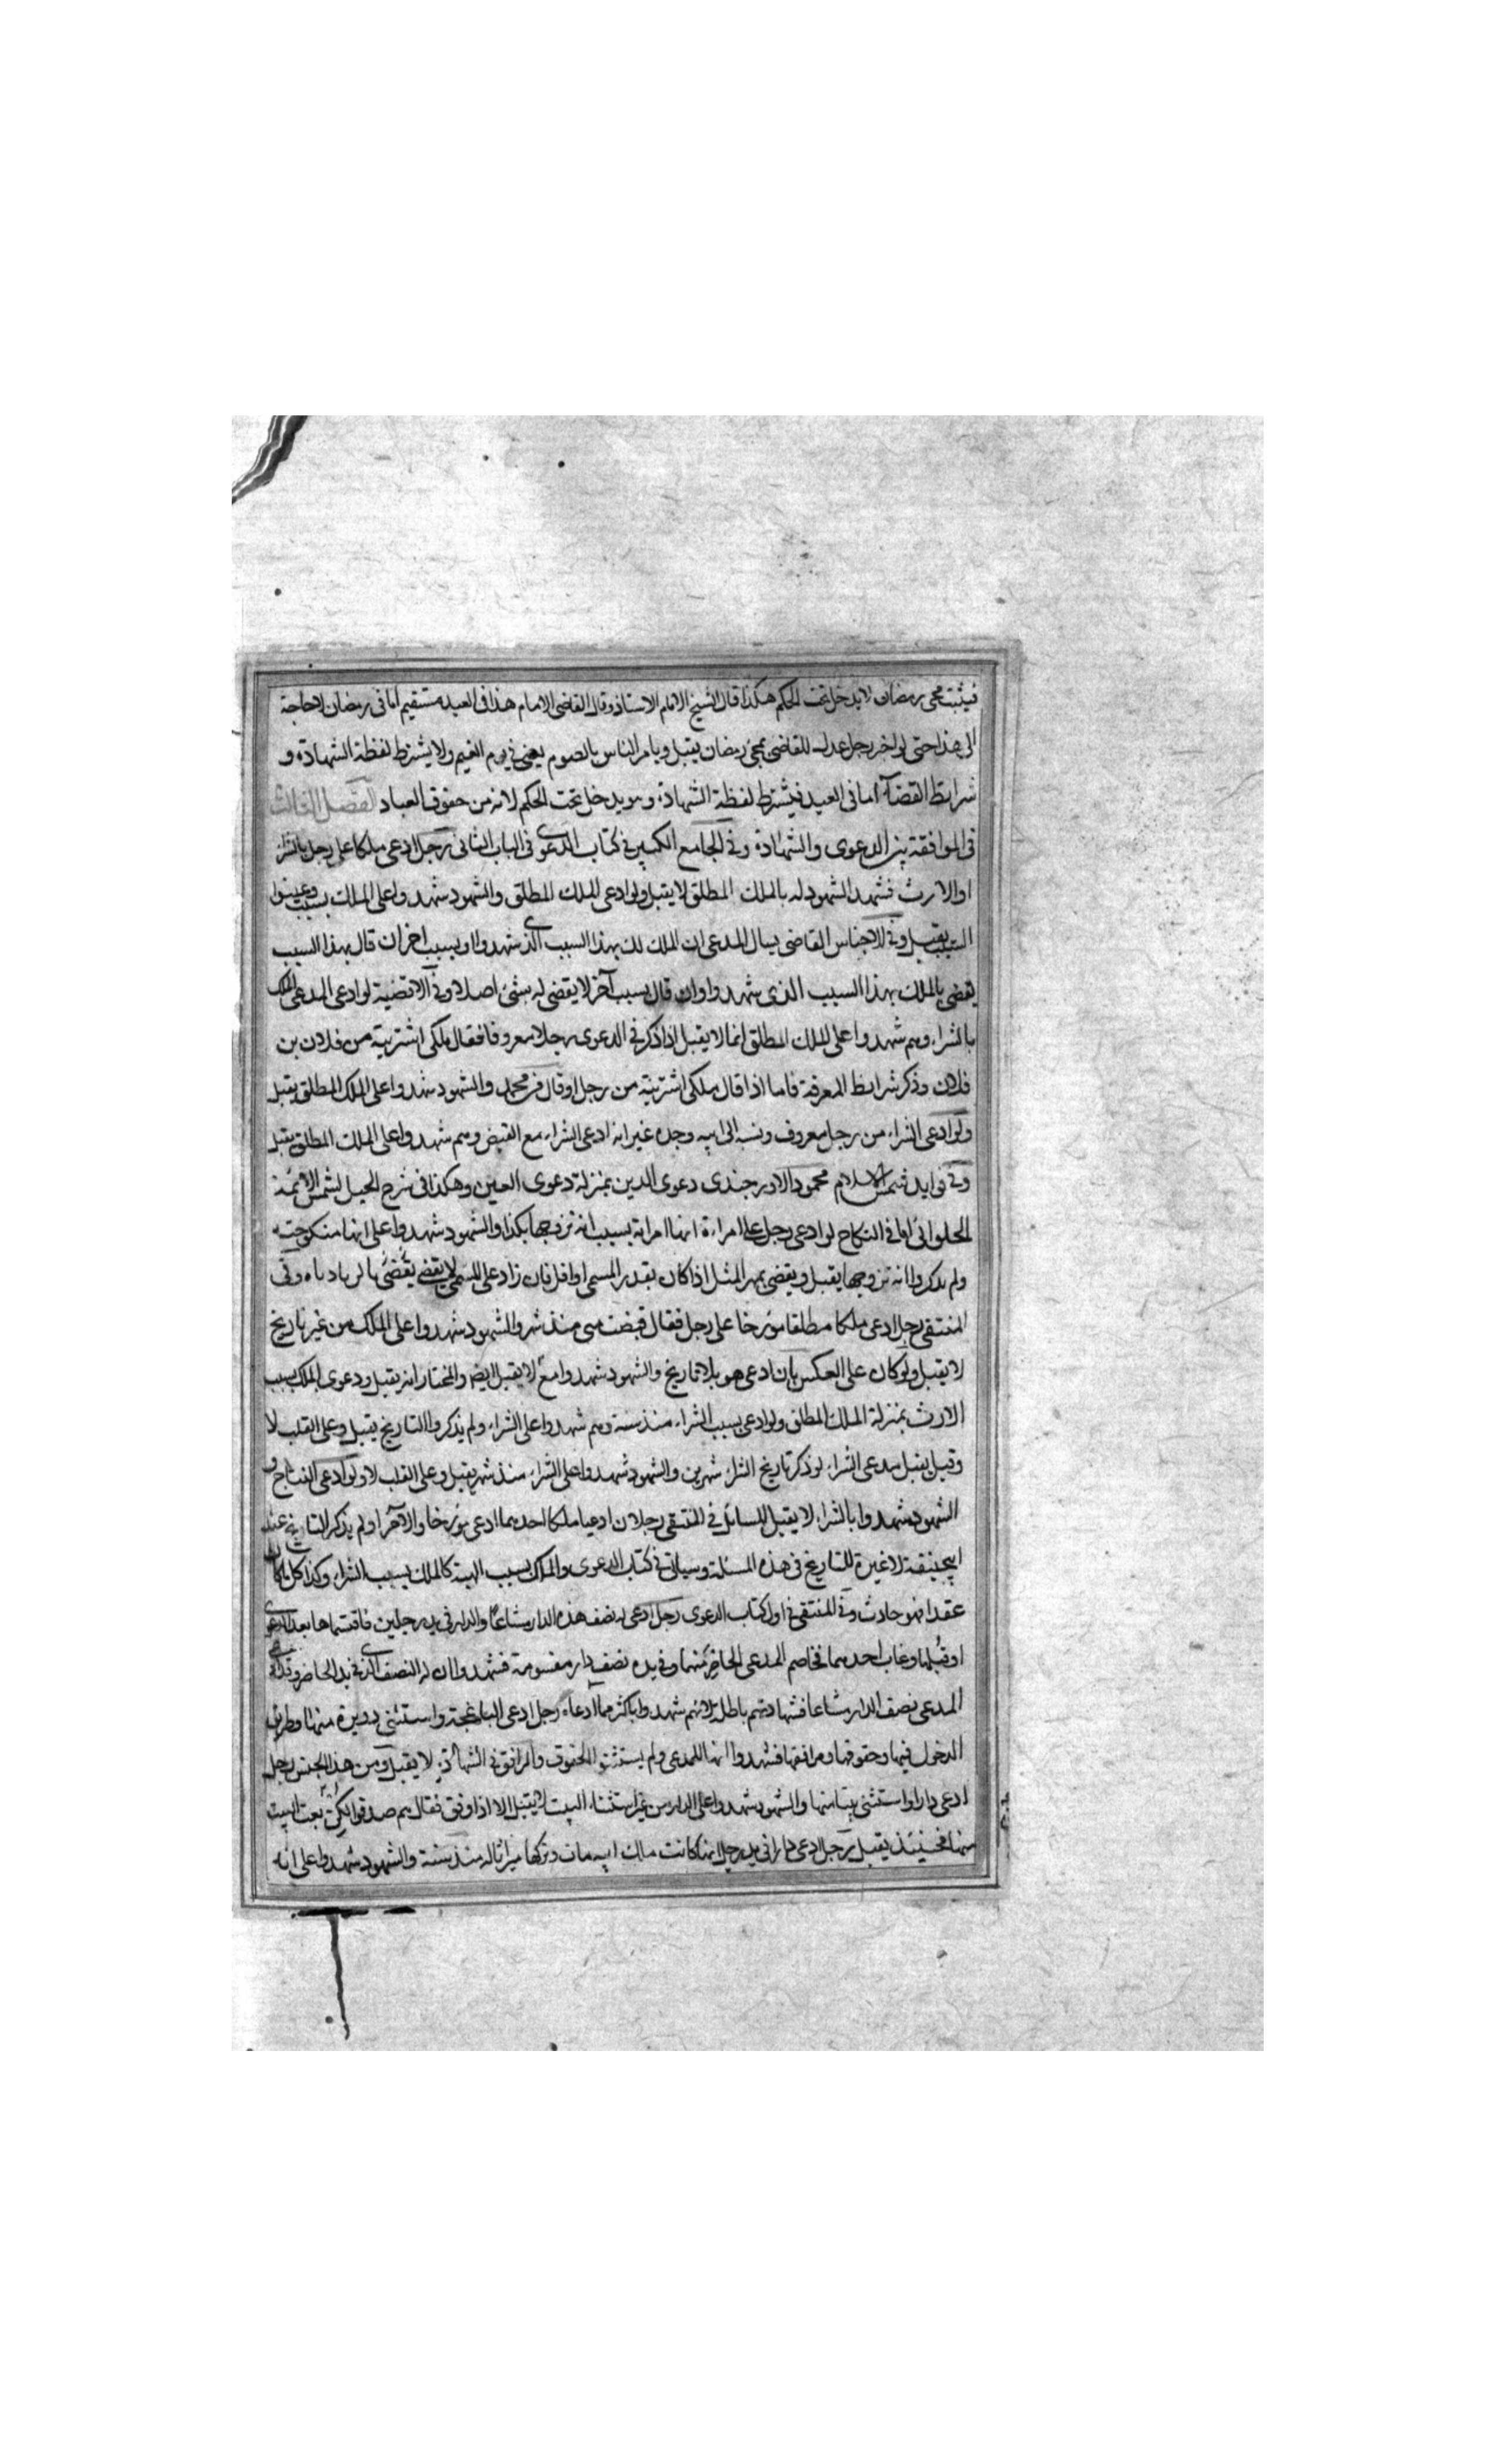 فيثبت مجى رمضان لا يدخل تحت الحكم هكذا قال الشيخ الامام الاستاذ وقال القاضى الامام هذا فى العيد مستقيم اما فى رمضان لا حاجة
الى هذا حتى لو اخبر رجل عدل للقاضى بمجئ رمضان يقبل ويامر الناس بالصوم يعنى فى يوم الغيم ولا يشترط لفظة الشهادة و
شرايط القضاء اما فى العيد فيشترط لفظة الشهادة وهو يدخل تحت الحكم لانه من حقوق العباد الفصل الثالث
فى الموافقة بين الدعوى والشهادة وفى الجامع الكبير فى كتاب الدعوى فى الباب الثانى رجل ادعى ملكا على رجل بالشراء
او الارث فشهد الشهود له بالملك المطلق لا يقبل ولو ادعى الملك المطلق والشهود شهدوا على الملك بسبب وعينوا
السبب يقبل وفى الاجناس القاضى يسال المدعى ان الملك لك بهذا السبب الذى شهدوا او بسبب اخر ان قال بهذا السبب
يقضى بالملك بهذا السبب الذى شهدوا وان قال بسبب آخر لا يقضى له بشئ اصلا وفى الاقضية لو ادعى المدعى الملك
بالشراء وهم شهدوا على الملك المطلق انما لا يقبل اذا ذكر فى الدعوى رجلا معروفا فقال ملكى اشتريته من فلان بن
فلان وذكر شرايط المعرفة فاما اذا قال ملكى اشتريته من رجل او قال من محمد والشهود شهدوا على الملك المطلق يقبل
ولو ادعى الشراء من رجل معروف ونسبه الى ابيه وجده غير انه ادعى الشراء مع القبض وهم شهدوا على الملك المطلق يقبل
وفى فوايد شمس الاسلام محمود الاوزجندى دعوى الدين بمنزلة دعوى العين وهكذا فى شرح الحيل لشمس الائمة
الحلوائى اما فى النكاح لو ادعى رجل على امراءة انها امراته بسبب انه تزوجها بكذا والشهود شهدوا على انها منكوحته
ولم يذكروا انه تزوجها يقبل ويقضى بمهر المثل اذا كان بقدر المسمى او اقل فان زاد على المسمى لا يقضى يقضى بالزيادة وفى
المنتقى رجل ادعى ملكا مطلقا مؤرخا على رجل فقال قبضت منى منذ شهر والشهود شهدوا على الملك من غير تاريخ
لا يقبل ولو كان على العكس بان ادعى هو بلا تاريخ والشهود شهدوا مع لا يقبل ايضا والمختار انه يقبل ودعوى الملك بسبب
الارث بمنزلة الملك المطلق ولو ادعى بسبب الشراء منذ سنة وهم شهدوا على الشراء ولم يذكروا التاريخ يقبل وعلى القلب لا
وقيل يقبل مدعى الشراء لو ذكر تاريخ الشراء شهرين والشهود شهدوا على الشراء منذ شهر يقبل وعلى القلب لا ولو ادعى النتاج و
الشهود شهدوا بالشراء لا يقبل المسائل فى المنتقى رجلان ادعيا ملكا احدهما ادعى مؤرخا والآخر لم يذكر التاريخ عند
ابيحنيفة لا عبرة للتاريخ فى هذه المسئلة وسياتى فى كتاب الدعوى والملك بسبب الهبة كالملك بسبب الشراء وكذا كل ما كان
عقدا فهو حادث وفى المنتقى فى اول كتاب الدعوى رجل ادعى نصف هذه الدار مشاعا والدار فى يد رجلين فاقتسماها بعد الدعوى
او قبلها وغاب احدهما فخاصم المدعى الحاضر منهما وفى يده نصف دار مقسومة فشهدوا ان له النصف الذى فى يد الحاضر
المدعى نصف الدار مشاعا فشهادتهم باطلة لانهم شهدوا باكثر مما ادعاه رجل ادعى الباغجة واستثنى دويرة منها وطريق
الدخول فيها وحقوقها ومرافقها فشهدوا انها للمدعى ولم يستثنوا الحقوق والمرافق فى الشهادة لا يقبل ومن هذا الجنس رجل
ادعى دارا واستثنى بيتا منها والشهود شهدوا على الدار من غير استثناء البيت لا يقبل الا اذا وفق فقال هم صدقوا لكنى بعت البيت
منها فحينئذ يقبل رجل ادعى دارا فى يد رجل انها كانت ملك ابيه مات وتركها ميراثا له منذ سنة والشهود شهدوا على انه